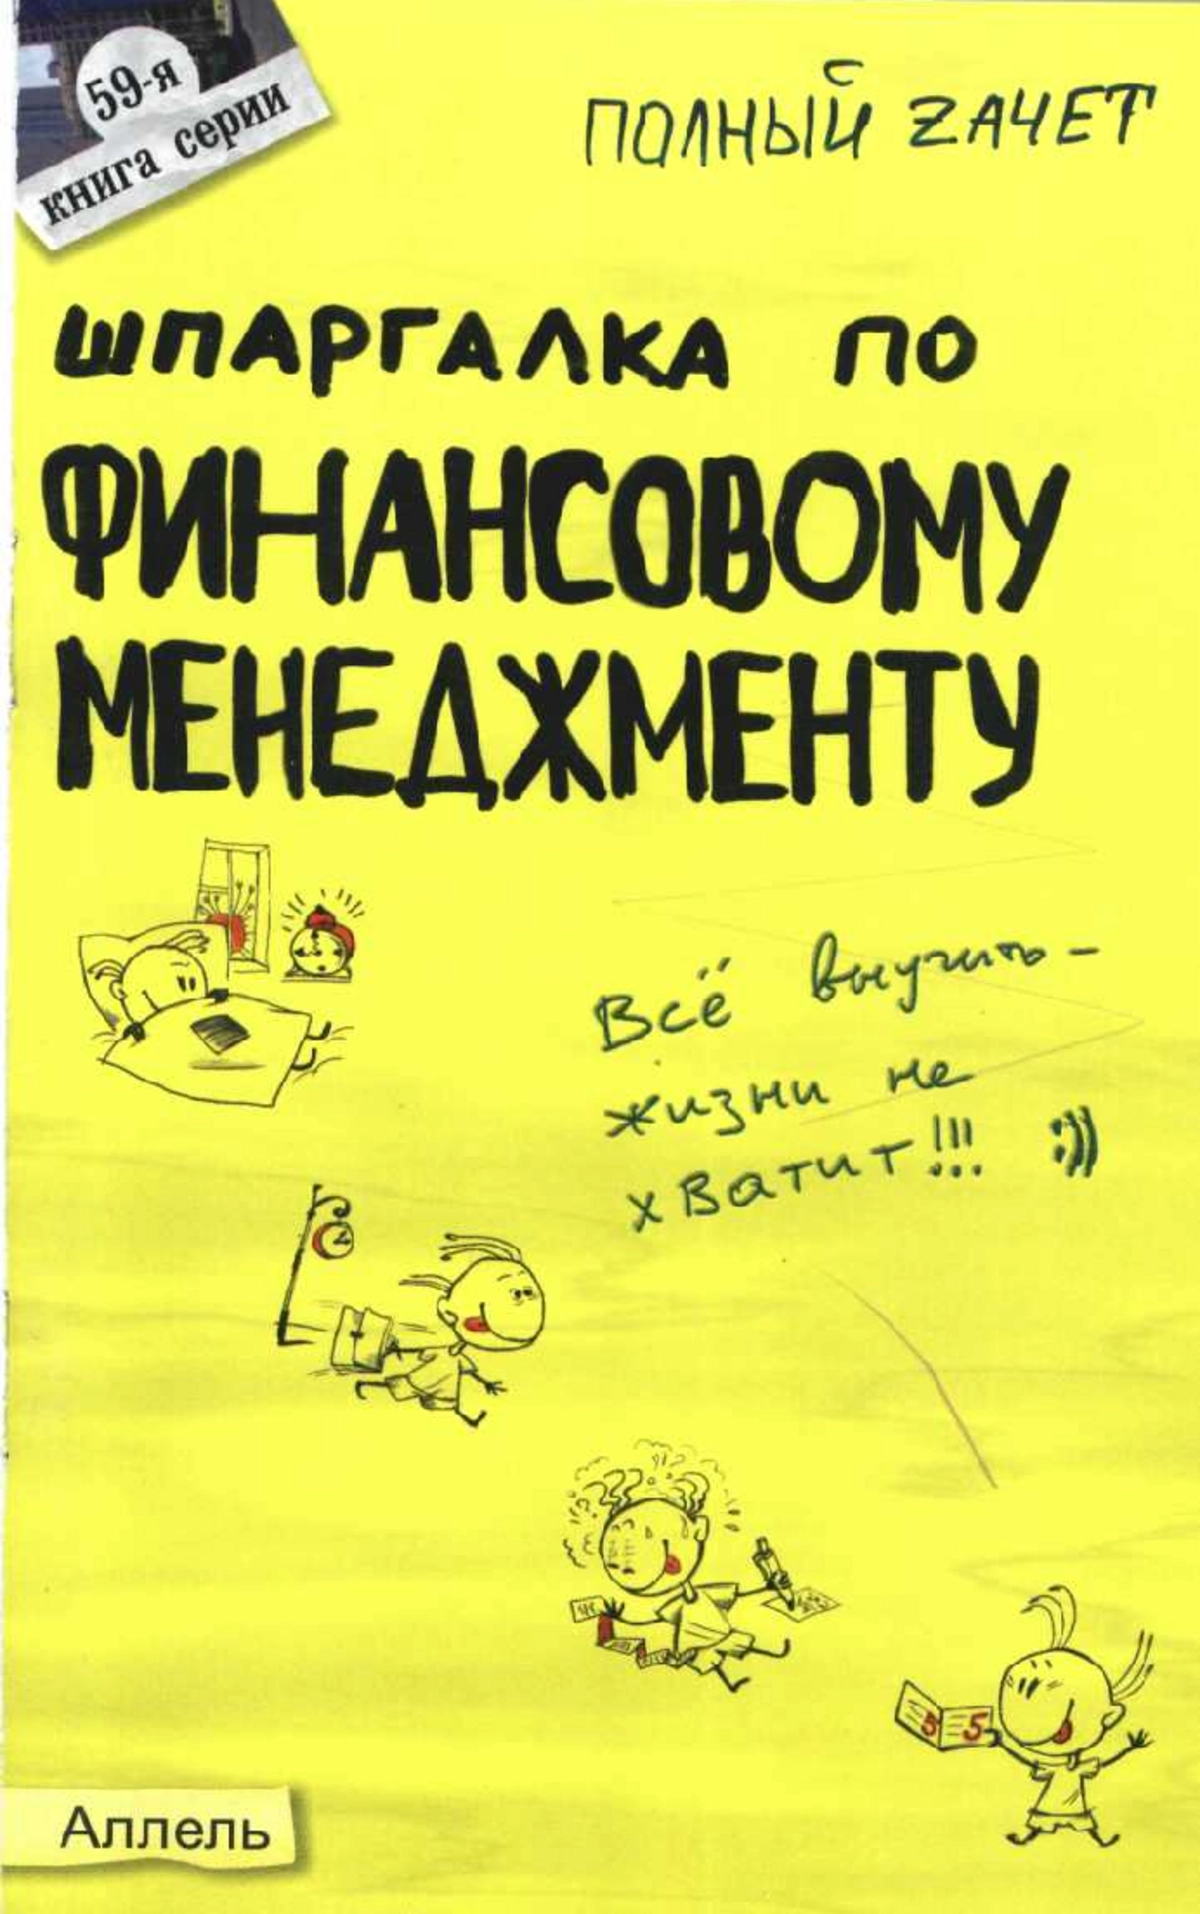 59-я
книга серии
ПОЛНЫЙ ZАЧЕТ
ШПАРГАЛКА ПО
ФИНАНСОВОМУ
МЕНЕДЖМЕНТУ
Всё выучить –
жизни не
хватит!!! :)))
5 5
Аллель